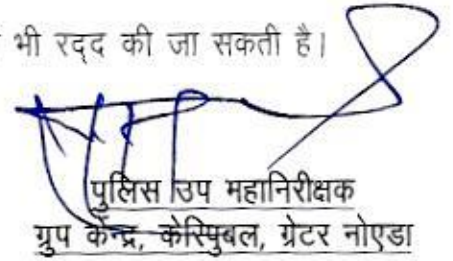 भी रद्द की जा सकती है।
पुलिस उप महानिरीक्षक
ग्रुप केन्द्र, केरिपुबल, ग्रेटर नोएडा